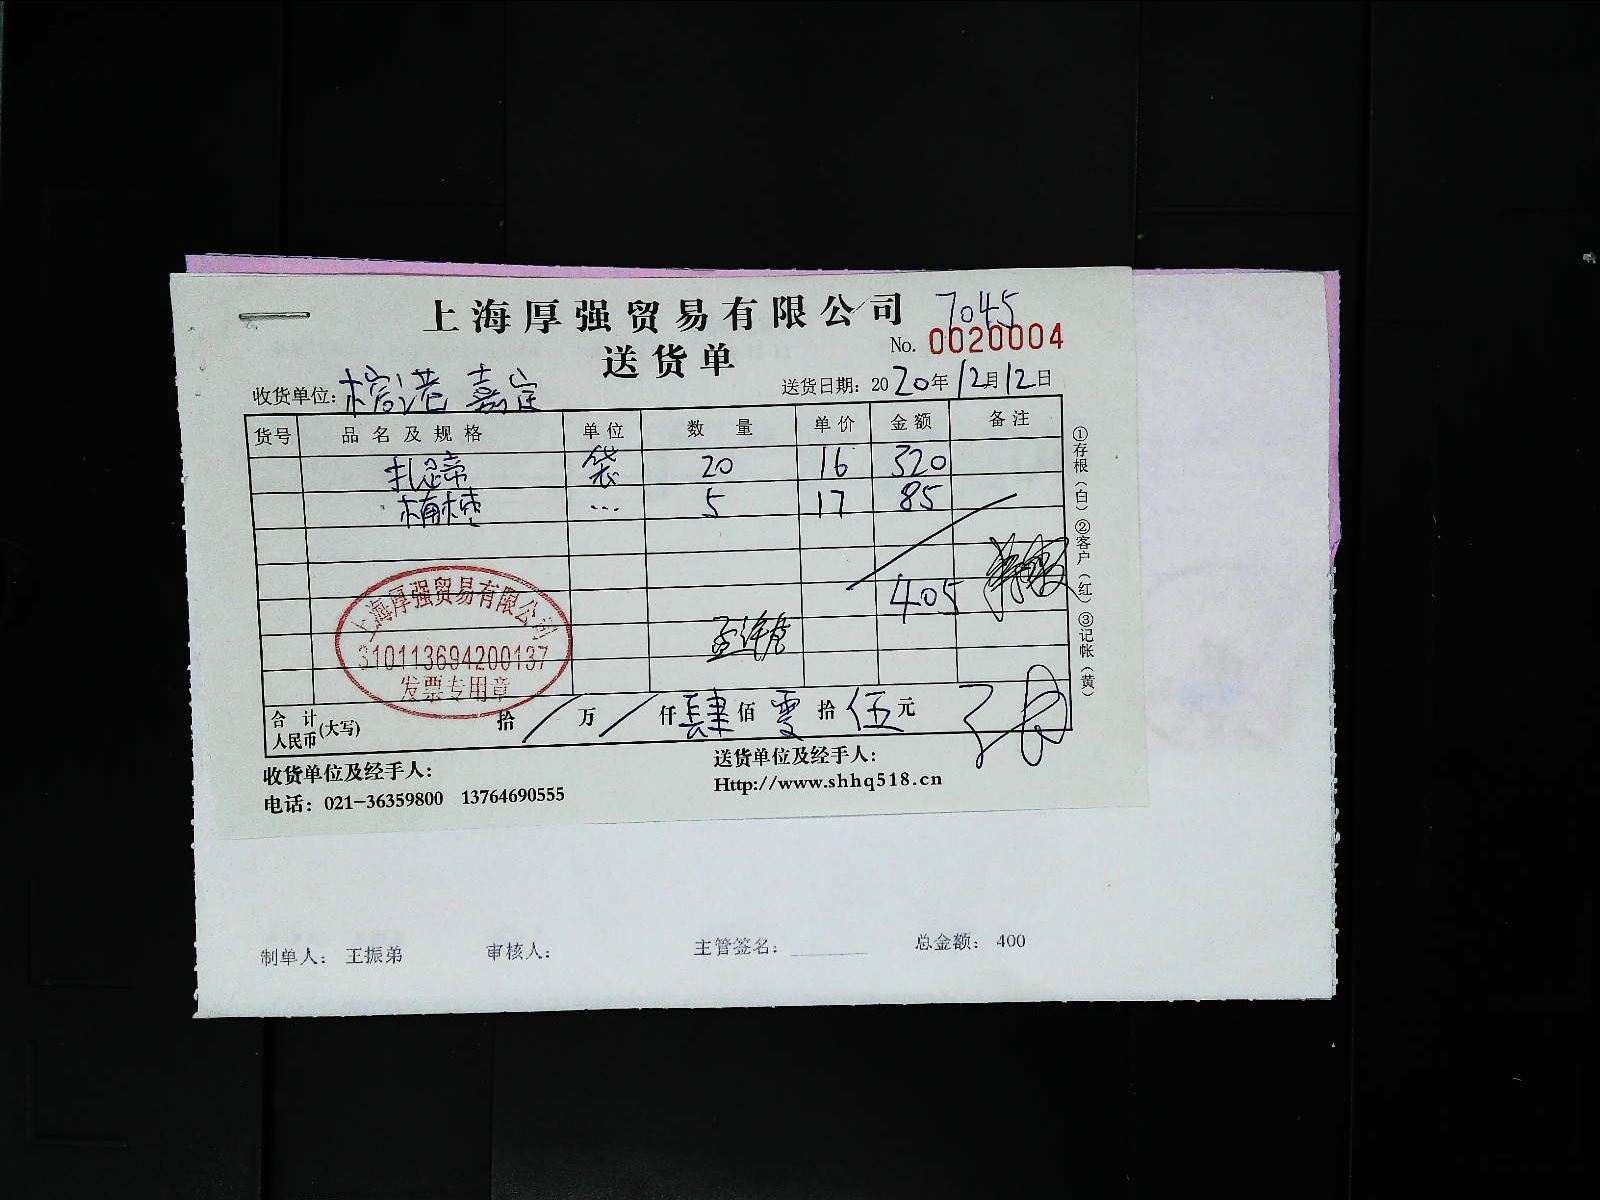 上海厚强贸易有限公司 7045
送货单 No. 0020004
收货单位: 嘉定 送货日期: 2020年12月12日
货号 品名及规格 单位 数量 单价 金额 备注
扎蹄 袋 20 16 320
5 17 85
405
上海厚强贸易有限公司
310113694200137
发票专用章
合计人民币(大写) 拾 / 万 / 仟 肆 佰 零 拾 伍 元
①存根(白)②客户(红)③记帐(黄)
收货单位及经手人: 送货单位及经手人:
电话: 021-36359800 13764690555 Http://www.shhq518.cn
制单人: 王振弟 审核人: 主管签名: 总金额: 400